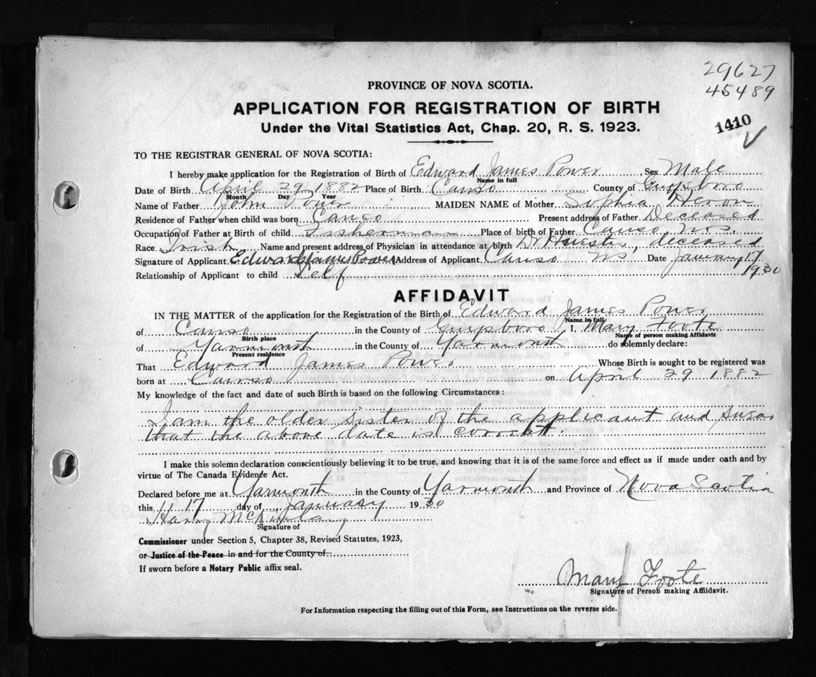 29627
45489
1410
PROVINCE OF NOVA SCOTIA.
APPLICATION FOR REGISTRATION OF BIRTH
Under the Vital Statistics Act, Chap. 20, R. S. 1923.
TO THE REGISTRAR GENERAL OF NOVA SCOTIA:
I hereby make application for the Registration of Birth of Edward James Power Sex Male
Name in full
Date of Birth April 29 1882 Place of Birth Canso County of Guysboro
Month Day Year
Name of Father John Power MAIDEN NAME of Mother Sophia Heron
Residence of Father when child was born Canso Present address of Father Deceased
Occupation of Father at Birth of child Fisherman Place of birth of Father Canso, N.S.
Race Irish Name and present address of Physician in attendance at birth Dr deceased
Signature of Applicant Edward James Power Address of Applicant Canso NS Date January 17
Relationship of Applicant to child Self 1930
AFFIDAVIT
IN THE MATTER of the application for the Registration of the Birth of Edward James Power
Name in full
of Canso in the County of Guysboro I, Mary Foote
Birth place Name of person making Affidavit
of Yarmouth in the County of Yarmouth do solemnly declare:
Present residence
That Edward James Power Whose Birth is sought to be registered was
born at Canso on April 29 1882
My knowledge of the fact and date of such Birth is based on the following Circumstances:
I am the older sister of the applicant and swear
that the above date is correct.
I make this solemn declaration conscientiously believing it to be true, and knowing that it is of the same force and effect as if made under oath and by
virtue of The Canada Evidence Act.
Declared before me at Yarmouth in the County of Yarmouth and Province of Nova Scotia
this 17 day of January 1930
Harry
Signature of
Commissioner under Section 5, Chapter 38, Revised Statutes, 1923,
or Justice of the Peace in and for the County of
If sworn before a Notary Public affix seal.
Mary Foote
Signature of Person making Affidavit.
For Information respecting the filling out of this Form, see Instructions on the reverse side.